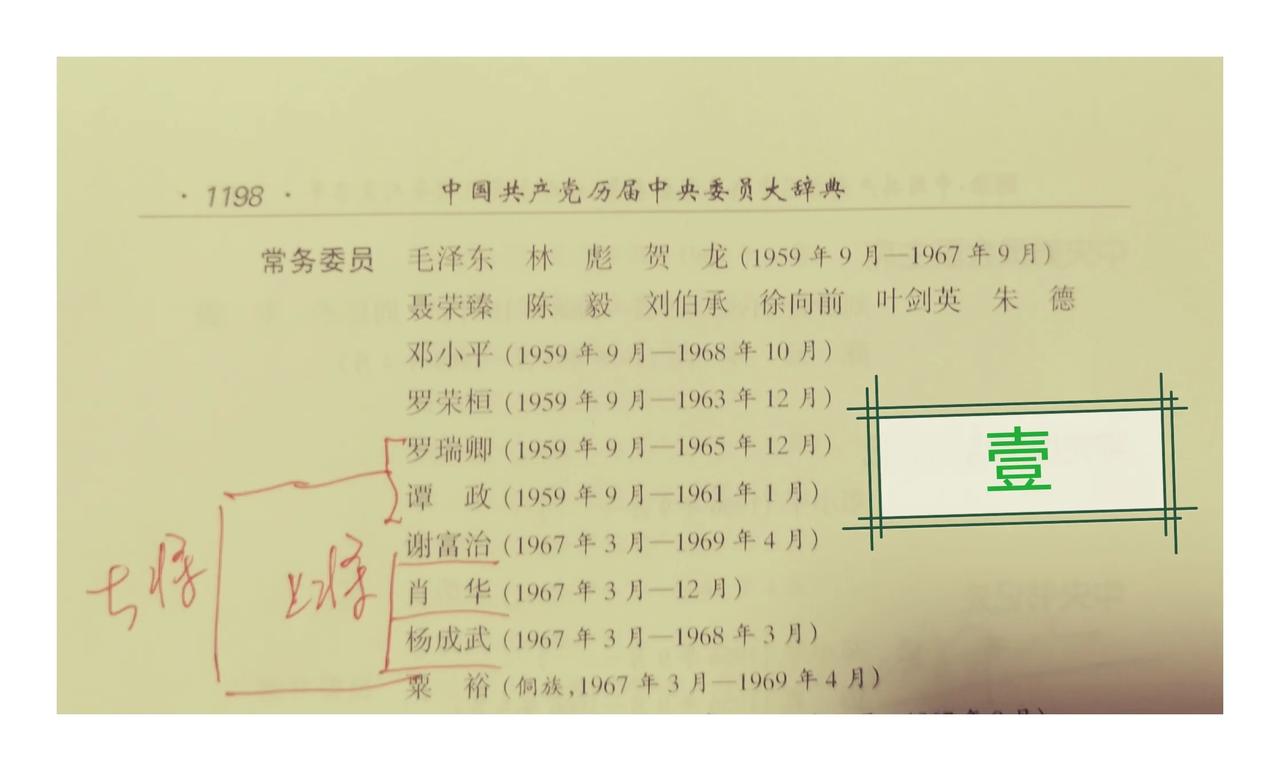 · 1198 · 中国共产党历届中央委员大辞典
常务委员 毛泽东 林 彪 贺 龙(1959年9月—1967年9月)
聂荣臻 陈 毅 刘伯承 徐向前 叶剑英 朱 德
邓小平(1959年9月—1968年10月)
罗荣桓(1959年9月—1963年12月)
罗瑞卿(1959年9月—1965年12月)
谭 政(1959年9月—1961年1月)
壹
谢富治(1967年3月—1969年4月)
大将 上将 肖 华(1967年3月—12月)
杨成武(1967年3月—1968年3月)
粟 裕(侗族,1967年3月—1969年4月)